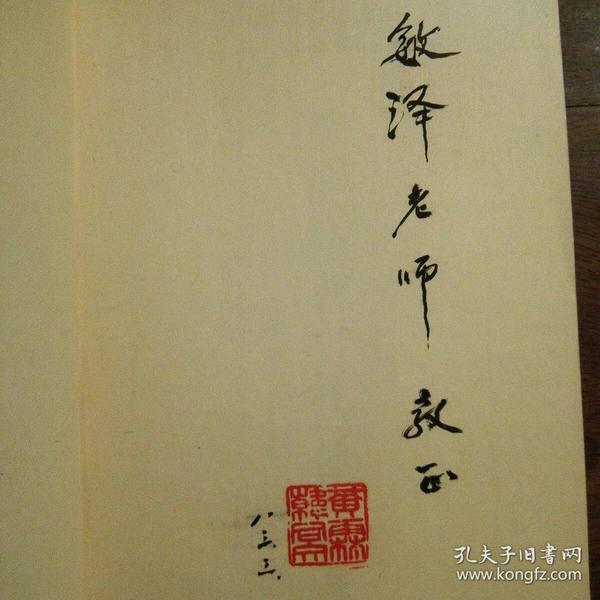 敏泽老师教正
八三、三、
孔夫子旧书网
www.kongfz.com